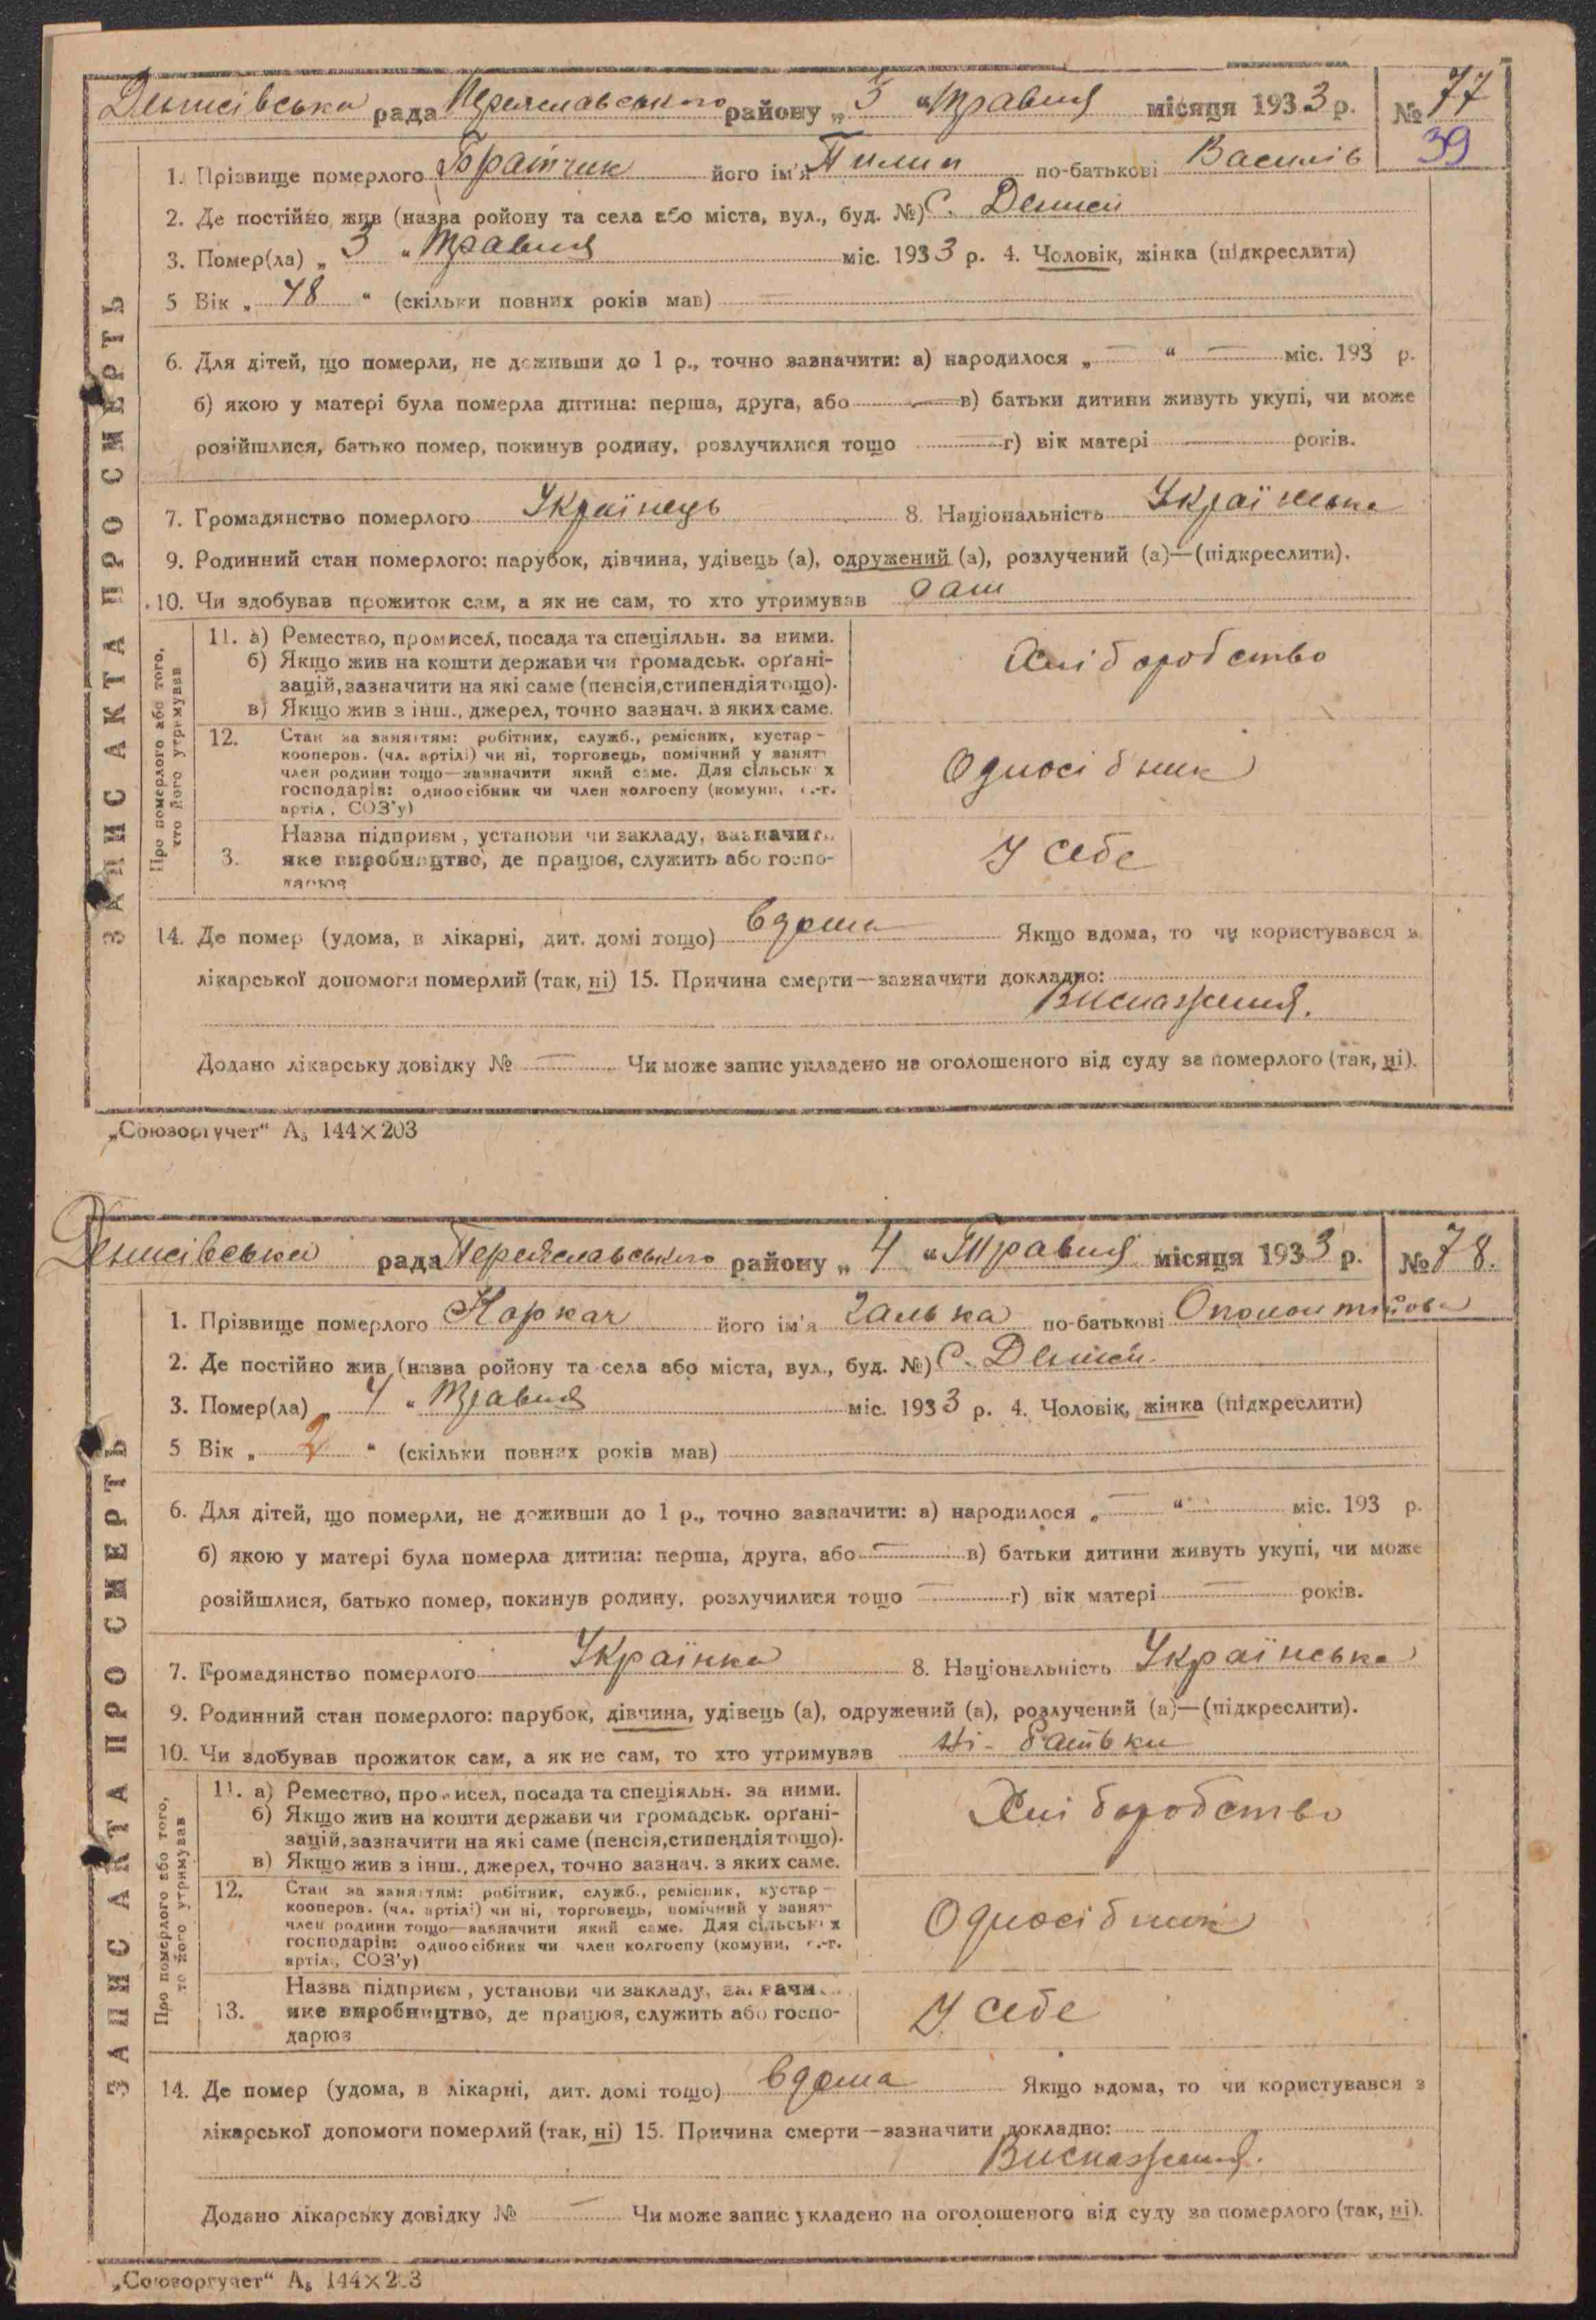 Денисівська рада Переяславського району „ 3 “ травня місяця 1933 р. № 77
39
ЗАПИС АКТА ПРО СМЕРТЬ
1. Прізвище померлого Братчик його ім'я Пилип по-батькові Василів
2. Де постійно жив (назва ройону та села або міста, вул., буд. №) С. Дениси
3. Помер(ла) „ 3 “ травня міс. 1933 р. 4. Чоловік, жінка (підкреслити)
5 Вік „ 48 “ (скільки повних років мав) —
6. Для дітей, що померли, не доживши до 1 р., точно зазначити: а) народилося „ — “ — міс. 193 р.
б) якою у матері була померла дитина: перша, друга, або — в) батьки дитини живуть укупі, чи може
розійшлися, батько помер, покинув родину, розлучилися тощо — г) вік матері — років.
7. Громадянство померлого Українець 8. Національність Українська
9. Родинний стан померлого: парубок, дівчина, удівець (а), одружений (а), розлучений (а)—(підкреслити).
10. Чи здобував прожиток сам, а як не сам, то хто утримував сам
Про померлого або того, хто його утримував
11. а) Ремество, промисел, посада та спеціяльн. за ними.
б) Якщо жив на кошти держави чи громадськ. орґані-
зацій, зазначити на які саме (пенсія, стипендія тощо).
в) Якщо жив з інш., джерел, точно зазнач. з яких саме.
Хліборобство
12. Стан за заняттям: робітник, служб., ремісник, кустар—
кооперов. (чл. артілі) чи ні, торговець, помічний у занят
член родини тощо—зазначити який саме. Для сільських
господарів: одноосібник чи член колгоспу (комуни, с.-г.
артіл, СОЗ'у)
Односібник
Назва підприєм, установи чи закладу, зазначит
3. яке виробництво, де працює, служить або госпо-
дарює
У себе
14. Де помер (удома, в лікарні, дит. домі тощо) вдома Якщо вдома, то чи користувався з
лікарської допомоги померлий (так, ні) 15. Причина смерти—зазначити докладно:
Виснаження.
Додано лікарську довідку № — Чи може запис укладено на оголошеного від суду за померлого (так, ні).
„Союзоргучет“ А5 144×203
Денисівська рада Переяславського району „ 4 “ травня місяця 1933 р. № 78.
ЗАПИС АКТА ПРО СМЕРТЬ
1. Прізвище померлого Коркач його ім'я Галька по-батькові
2. Де постійно жив (назва ройону та села або міста, вул., буд. №) С. Дениси
3. Помер(ла) „ 4 “ травня міс. 1933 р. 4. Чоловік, жінка (підкреслити)
5 Вік „ 2 “ (скільки повних років мав)
6. Для дітей, що померли, не доживши до 1 р., точно зазначити: а) народилося „ — “ міс. 193 р.
б) якою у матері була померла дитина: перша, друга, або — в) батьки дитини живуть укупі, чи може
розійшлися, батько помер, покинув родину, розлучилися тощо — г) вік матері — років.
7. Громадянство померлого Українка 8. Національність Українська
9. Родинний стан померлого: парубок, дівчина, удівець (а), одружений (а), розлучений (а)—(підкреслити).
10. Чи здобував прожиток сам, а як не сам, то хто утримував Ні- батьки
Про померлого або того, хто його утримував
11. а) Ремество, промисел, посада та спеціяльн. за ними.
б) Якщо жив на кошти держави чи громадськ. орґані-
зацій, зазначити на які саме (пенсія, стипендія тощо).
в) Якщо жив з інш., джерел, точно зазнач. з яких саме.
Хліборобство
12. Стан за заняттям: робітник, служб., ремісник, кустар—
кооперов. (чл. артілі) чи ні, торговець, помічний у занят
член родини тощо—зазначити який саме. Для сільських
господарів: одноосібник чи член колгоспу (комуни, с.-г.
артіл., СОЗ'у)
Односібник
Назва підприєм, установи чи закладу, зазначи
13. яке виробництво, де працює, служить або госпо-
дарює
У себе
14. Де помер (удома, в лікарні, дит. домі тощо) вдома Якщо вдома, то чи користувався з
лікарської допомоги померлий (так, ні) 15. Причина смерти—зазначити докладно:
Виснаження.
Додано лікарську довідку № — Чи може запис укладено на оголошеного від суду за померлого (так, ні).
„Союзоргучет“ А5 144×203